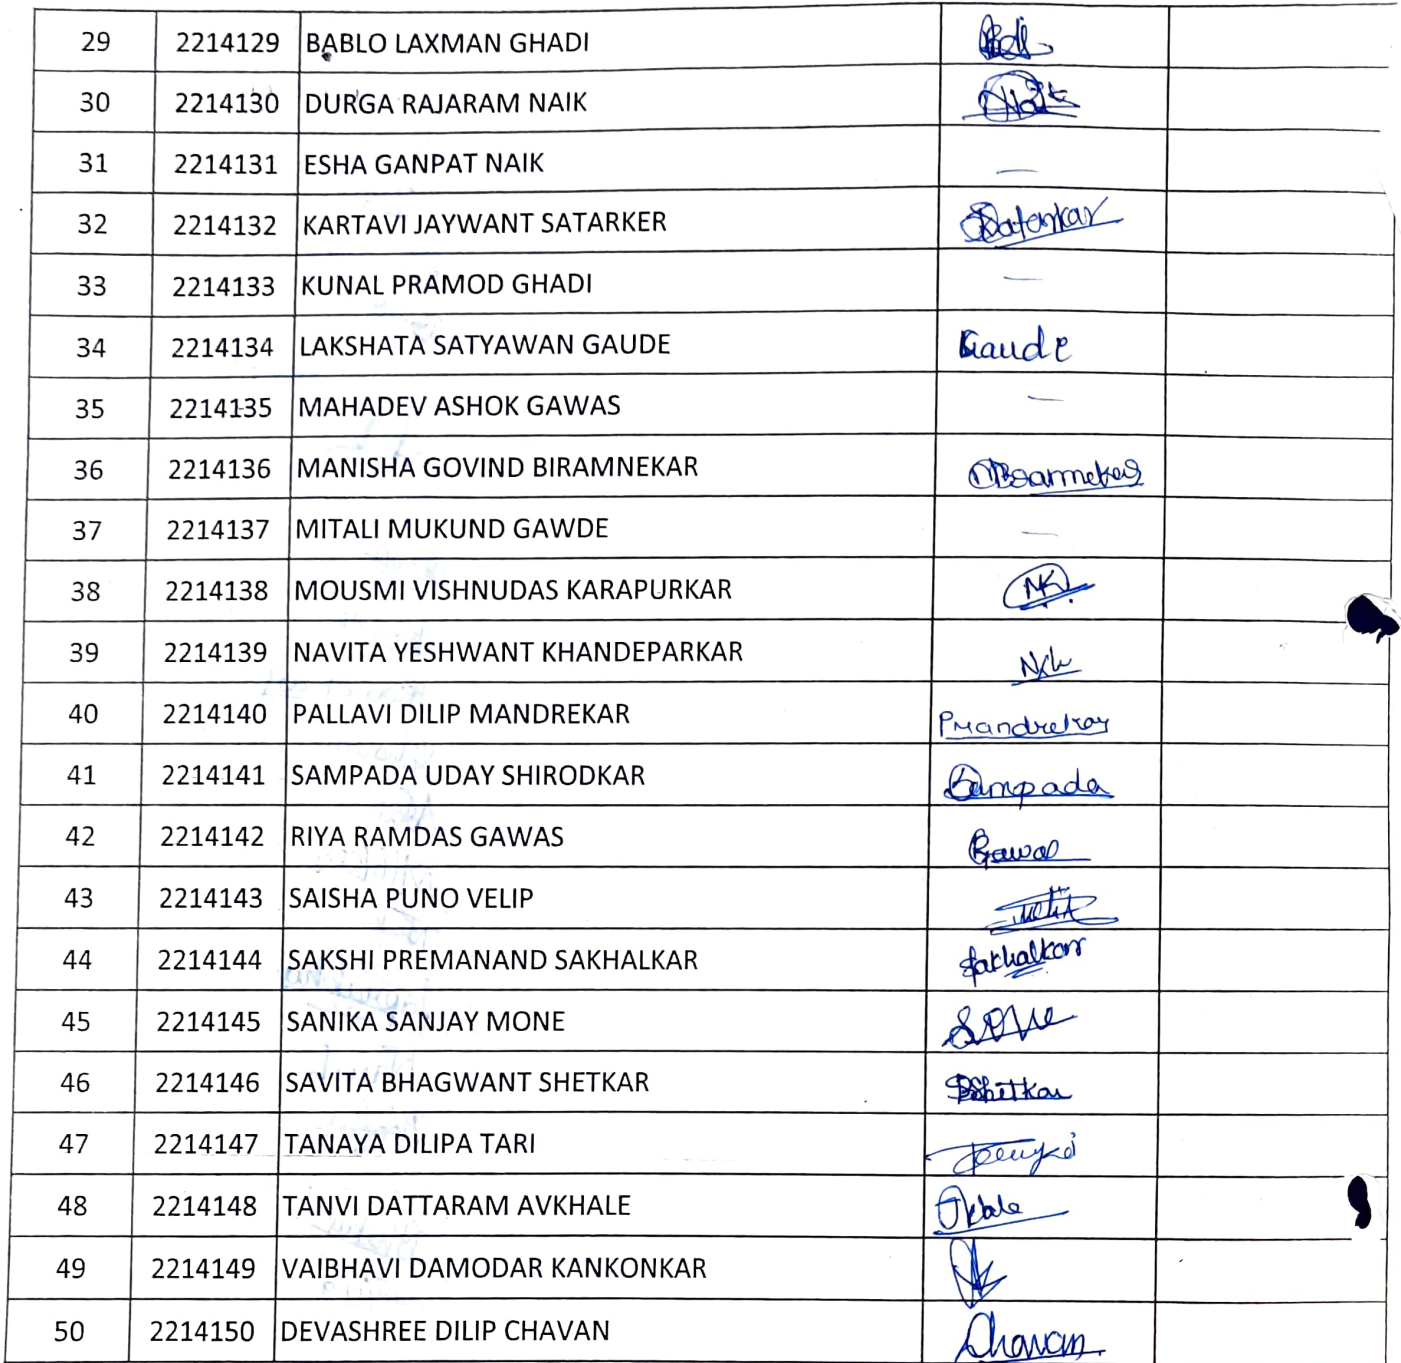 29 2214129 BABLO LAXMAN GHADI
30 2214130 DURGA RAJARAM NAIK Naik
31 2214131 ESHA GANPAT NAIK —
32 2214132 KARTAVI JAYWANT SATARKER Satarkar
33 2214133 KUNAL PRAMOD GHADI —
34 2214134 LAKSHATA SATYAWAN GAUDE Gaude
35 2214135 MAHADEV ASHOK GAWAS —
36 2214136 MANISHA GOVIND BIRAMNEKAR
37 2214137 MITALI MUKUND GAWDE —
38 2214138 MOUSMI VISHNUDAS KARAPURKAR
39 2214139 NAVITA YESHWANT KHANDEPARKAR
40 2214140 PALLAVI DILIP MANDREKAR PMandrekar
41 2214141 SAMPADA UDAY SHIRODKAR Sampada
42 2214142 RIYA RAMDAS GAWAS
43 2214143 SAISHA PUNO VELIP
44 2214144 SAKSHI PREMANAND SAKHALKAR Sakhalkar
45 2214145 SANIKA SANJAY MONE
46 2214146 SAVITA BHAGWANT SHETKAR Shetkar
47 2214147 TANAYA DILIPA TARI
48 2214148 TANVI DATTARAM AVKHALE
49 2214149 VAIBHAVI DAMODAR KANKONKAR
50 2214150 DEVASHREE DILIP CHAVAN Chavan